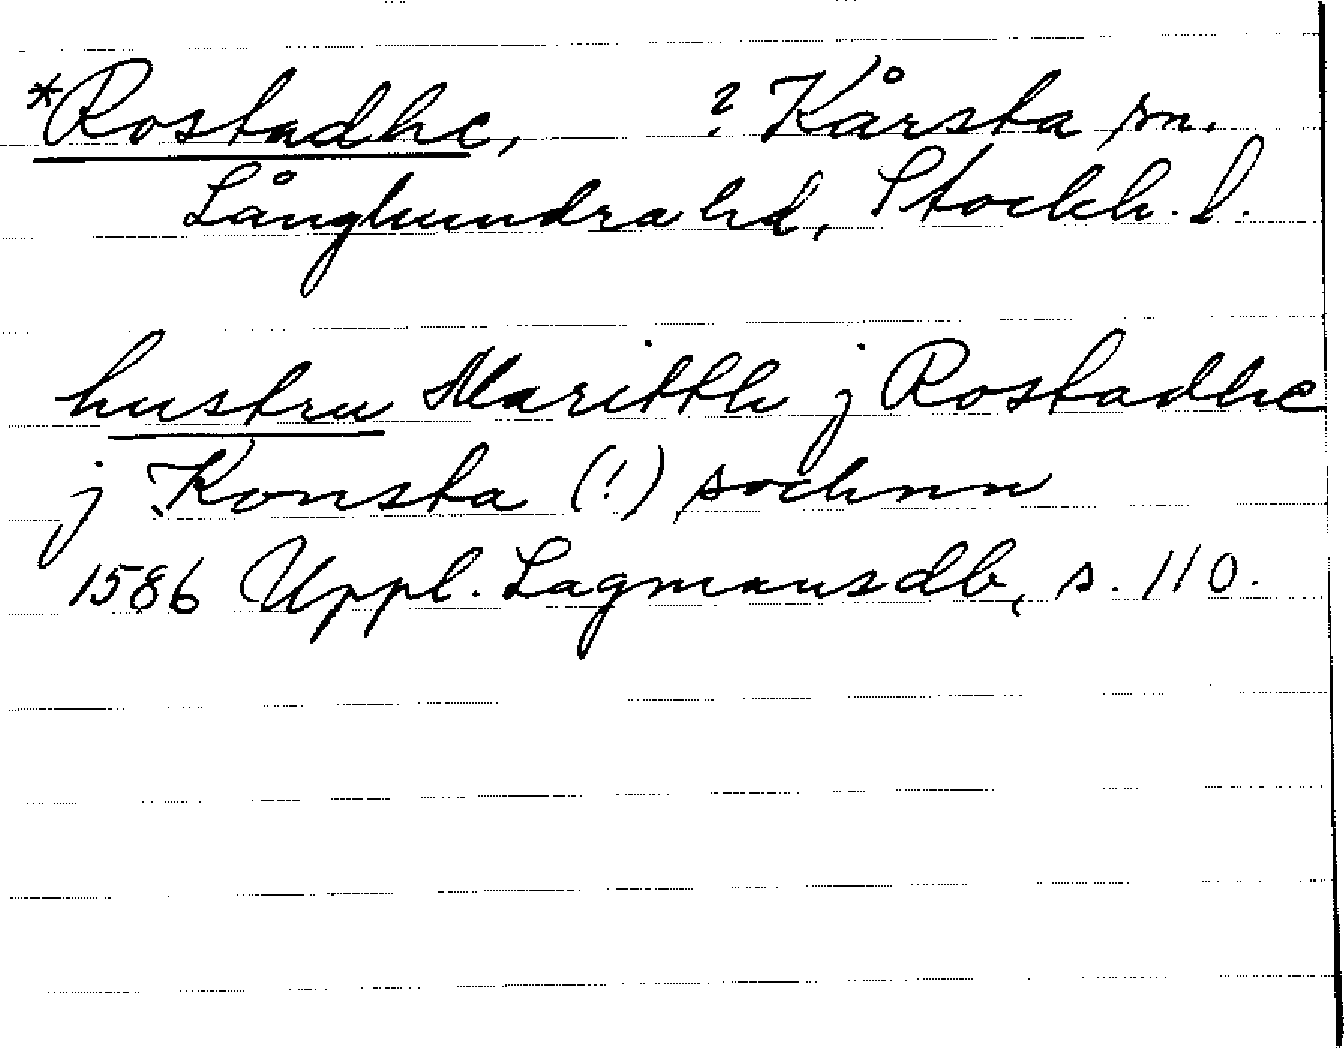 *Rostadhe, ? Kårsta sn.
Långhundra hd, Stockh. l.
hustru Maritth j Rostadhe
j Konsta (!) sochnn
1586 Uppl. Lagmansdb, s. 110.